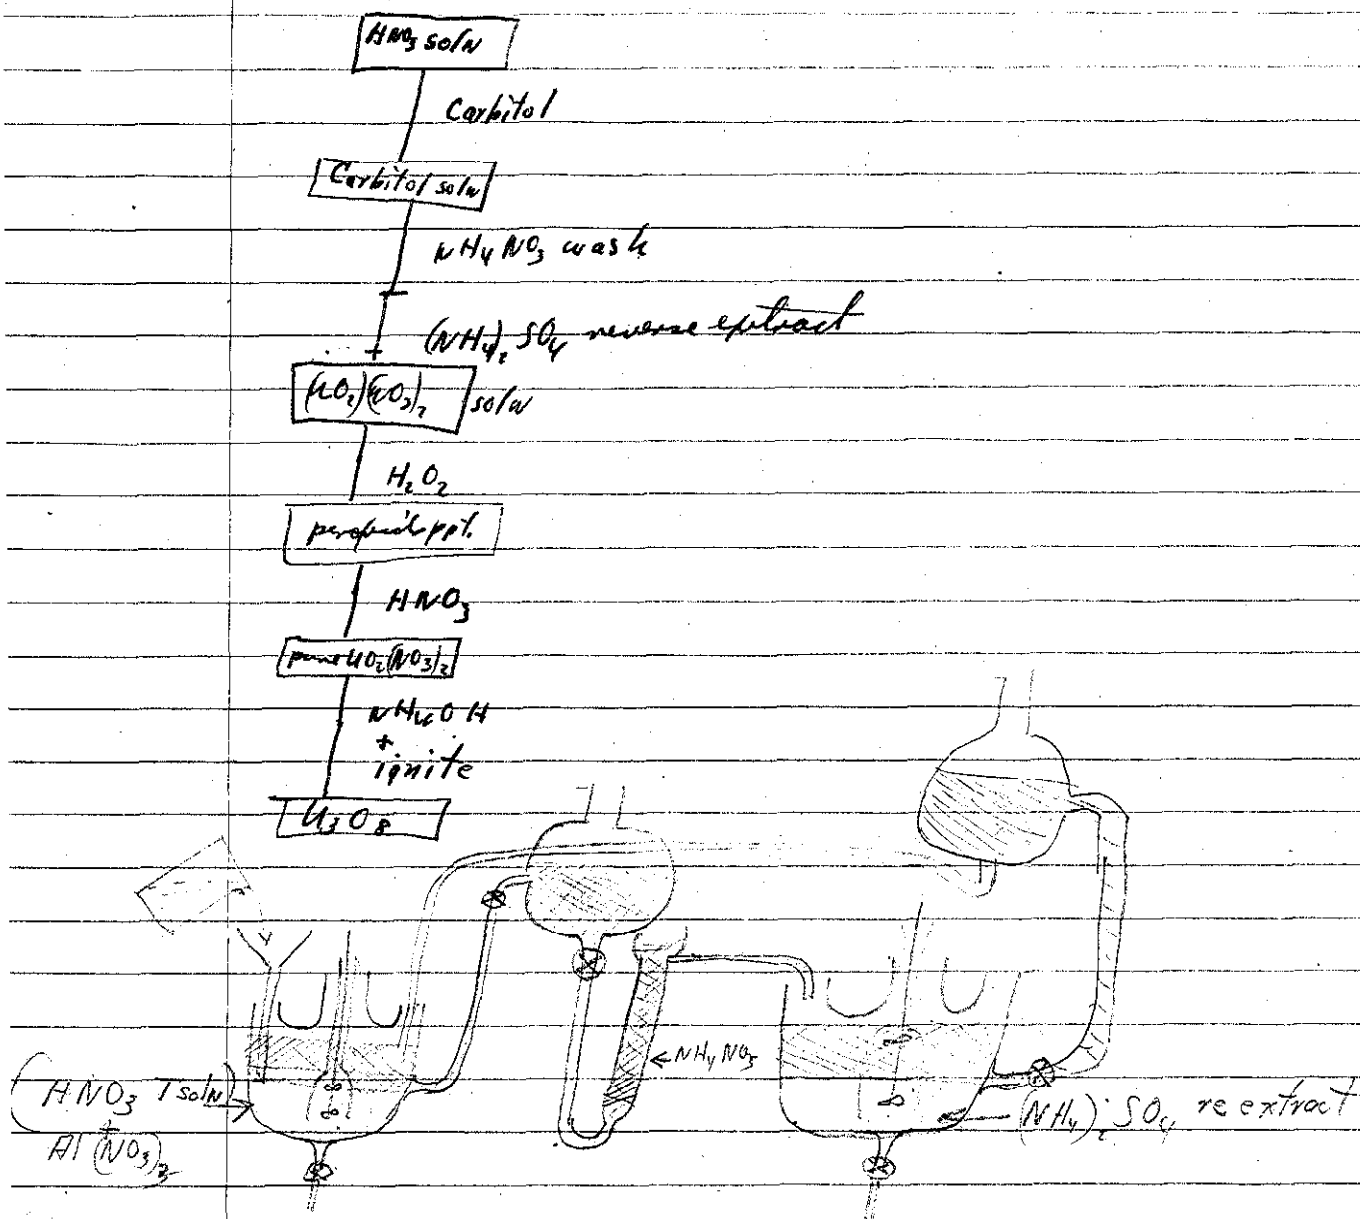 HNO₃ soln
Carbitol
Carbitol soln
NH₄NO₃ wash
(NH₄)₂SO₄ reverse extract
soln
H₂O₂
ppt.
HNO₃
pure UO₂(NO₃)₂
NH₄OH
+
ignite
U₃O₈
← NH₄NO₃
HNO₃ soln
+
Al(NO₃)₃
(NH₄)₂SO₄ re extract